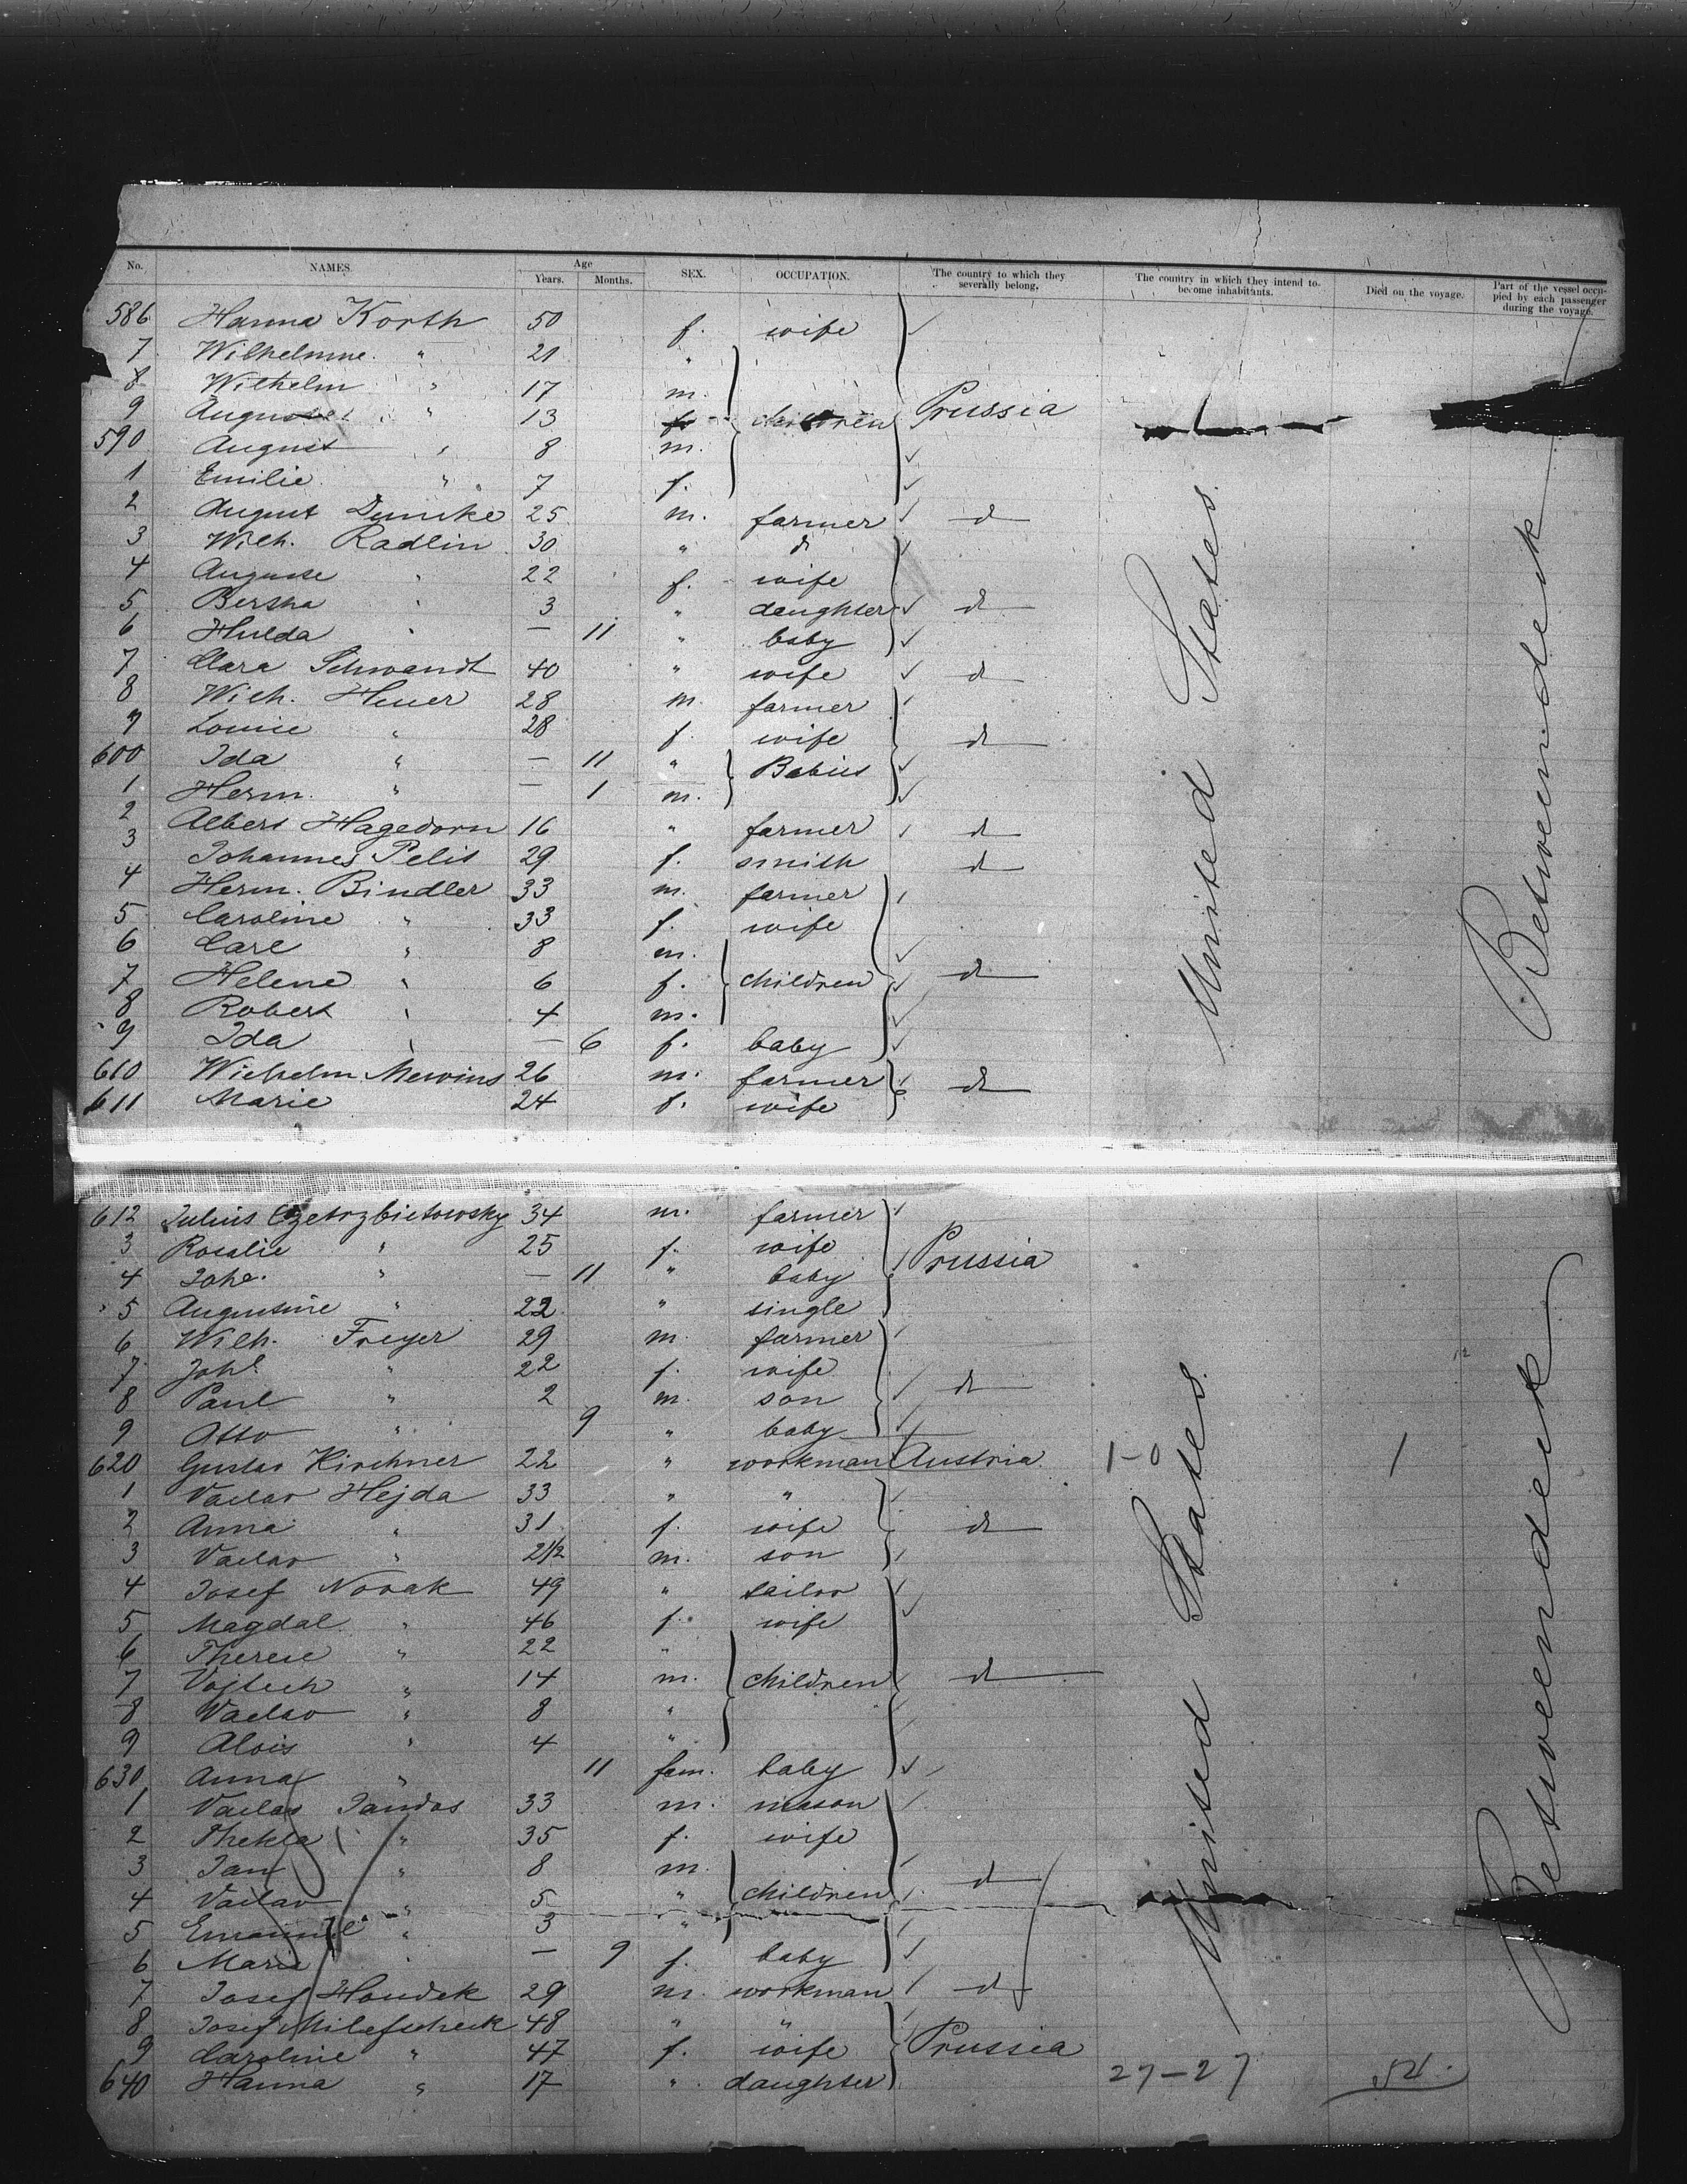 No. NAMES. Age Years. Months. SEX. OCCUPATION. The country to which they severally belong. The country in which they intend to become inhabitants. Died on the voyage. Part of the vessel occupied by each passenger during the voyage.
586 Hanna Korth 50 f. wife
7 Wilhelmine " 21 "
8 Wilhelm " 17 m.
9 Auguste " 13 f. children Prussia
590 August " 8 m.
1 Emilie " 7 f.
2 August Dumke 25 m. farmer d
3 Wilh. Radlin 30 " d
4 Auguste " 22 f. wife
5 Bertha " 3 " daughter d
6 Hulda " — 11 " baby
7 Clara Schwandt 40 " wife d
8 Wilh. Heuer 28 m. farmer
9 Louise " 28 f. wife d
600 Ida " — 11 " Babies
1 Herm. " — 1 m.
2 Albert Hagedorn 16 " farmer d
3 Johannes Pelis 29 f. smith d
4 Herm. Bindler 33 m. farmer
5 Caroline " 33 f. wife
6 Carl " 8 m.
7 Helene " 6 f. children d
8 Robert " 4 m.
9 Ida " — 6 f. baby
610 Wilhelm 26 m. farmer d
611 Marie 24 f. wife
United States
Betweendeck
612 Julius 34 m. farmer
3 Rosalie " 25 f. wife Prussia
4 " — 11 " baby
5 Augustine " 22 " single
6 Wilh. Freyer 29 m. farmer
7 " 22 f. wife
8 Paul " 2 m. son d
9 Otto " 9 " baby
620 Gustav Kirchner 22 " workman Austria 1-0 1
1 Vaclav Hejda 33 " "
2 Anna " 31 f. wife d
3 Vaclav " 2 1/2 m. son
4 Josef Novak 49 " tailor
5 Magdal. " 46 f. wife
6 Therese " 22 "
7 Vojtech " 14 m. children d
8 Vaclav " 8 "
9 Alois " 4 "
630 Anna " 11 fem. baby
1 Vaclav Jandos 33 m. mason
2 Thekla " 35 f. wife
3 Jan " 8 m. d
4 Vaclav " 5 " children
5 Emanuel " 3 "
6 Marie " — 9 f. baby
7 Josef Houdek 29 m. workman d
8 Josef 48 " "
9 Caroline " 47 f. wife Prussia
640 Hanna " 17 " daughter 27-27
United States
Betweendeck